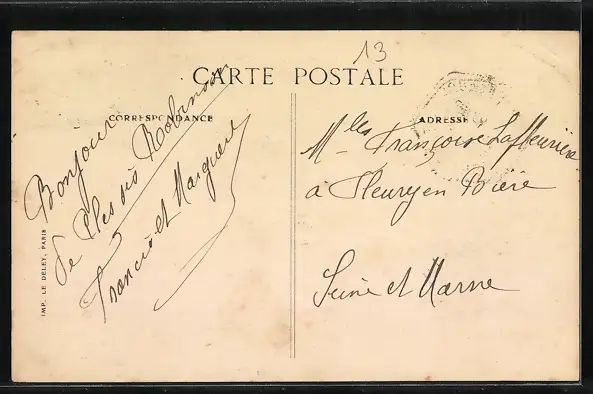 13
CARTE POSTALE
CORRESPONDANCE
ADRESSE
Bonjour
de Plessis Robinson
Francis et Marguerite
Mlles Françoise Lafleurière
à Fleury en Bière
Seine et Marne
IMP. LE DELEY, PARIS